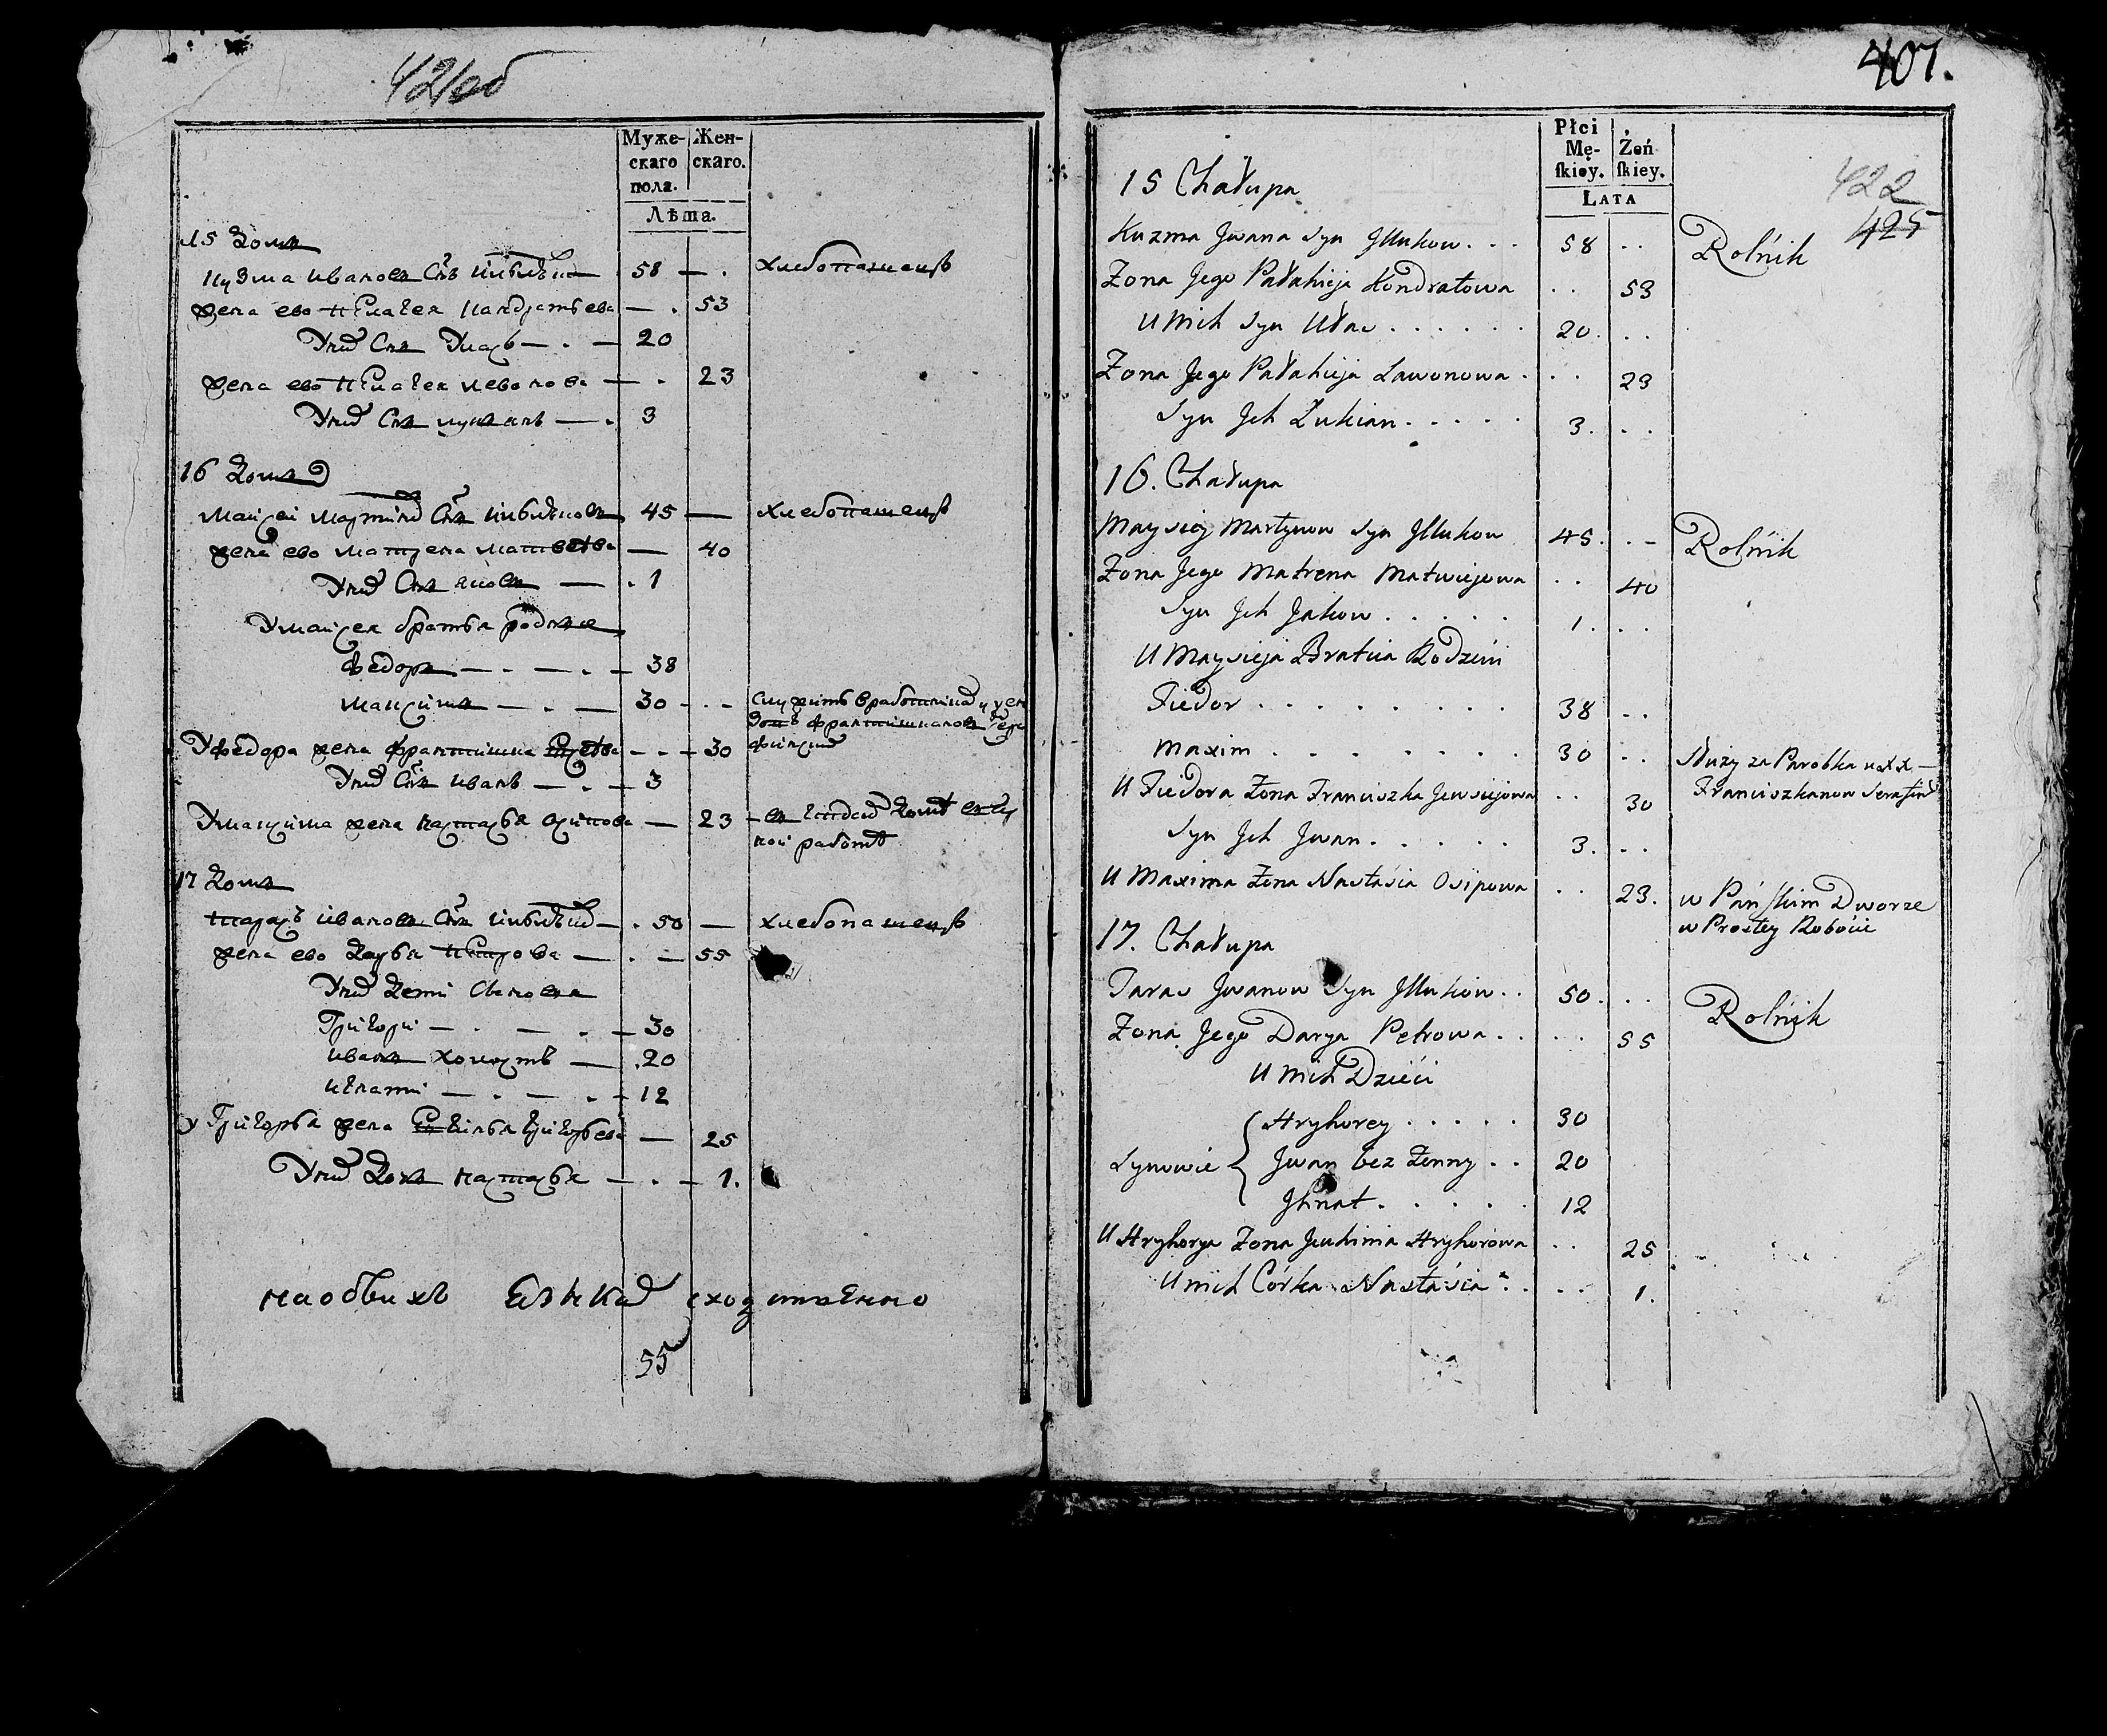 421об
Муже-
скаго
пола.
Жен-
скаго.
Лѣта.
15 Домъ
Кузма Ивановъ Снъ 58 — . хлебопашецъ
жена ево Пелагея Кандратьева — . 53
Уних Снъ Уласъ — . — 20
жена ево Пелагея Левонова — . 23
Уних Снъ Лукьянъ — . 3
16 Домъ
Мансеи Мартинов Снъ 45 — хлебопашецъ
жена ево Матрена Матвеева — 40
Уних Снъ Яковъ — . 1
Умансея братья родные
Федоръ — . — . — 38
Максимъ — . — 30 - . -
Уфедора жена Францишка - . - 30
Уних Снъ Иванъ — . — 3
Умаксима жена Настасья Осипова — 23
ной работѣ
17 Домъ
Тарасъ Ивановъ Снъ — . 50 — хлебопашецъ
жена ево Дарья Петрова — . — 55
Уних Дети Сыновья
Григори — . — . — 30
Иванъ холостъ — . 20
Игнати — . — . — 12
у Григорья жена Григорьева — 25
Уних Дочь Настасья — . — 1.
на обвихъ сходственно
55
407.
422
425
Płci
Mę-
ſkiey.
Żeń
ſkiey.
LATA
15 Chałupa
Kuzma Jwana Syn . . . 58 . . Rolńik
Zona Jego Pałahieja Kondratowa . . 53
U nich Syn Ułas . . . . . . 20 . . .
Zona Jego Pałahieja Lawonowa . . . 23
Syn Jch Łukian . . . . . 3. . .
16. Chałupa
Maysiey Martynow Syn 45. . - Rolńik
Zona Jego Matrena Matwiejowa . . 40
Syn Jch Jakow . . . . . 1. . .
U Maysieja Bratia Rodzeni
Fiedor . . . . . . . . 38 . .
Maxim . . . . . . . 30 . . Służy za Parobka u XX —
Franciszkanow
U Fiedora Zona Franciszka Jewsiejowa . . 30
Syn Jch Jwan . . . . . 3. . .
U Maxima Zona Nastasia Osipowa . . 23. w Pańſkim Dworze
w Prostey Roboćie
17. Chałupa
Taras Jwanow Syn . . 50. . . Rolńik
Zona Jego Darya Petrowa . . . . 55
U nich Dzieći
Synowie { Hryhorey . . . . . 30
Jwan bez Zenny . . 20
Jhnat . . . . . 12
U Hryhorya Zona Jewhinia Hryhorowa . . 25
U nich Córka Nastasia . . . . 1.